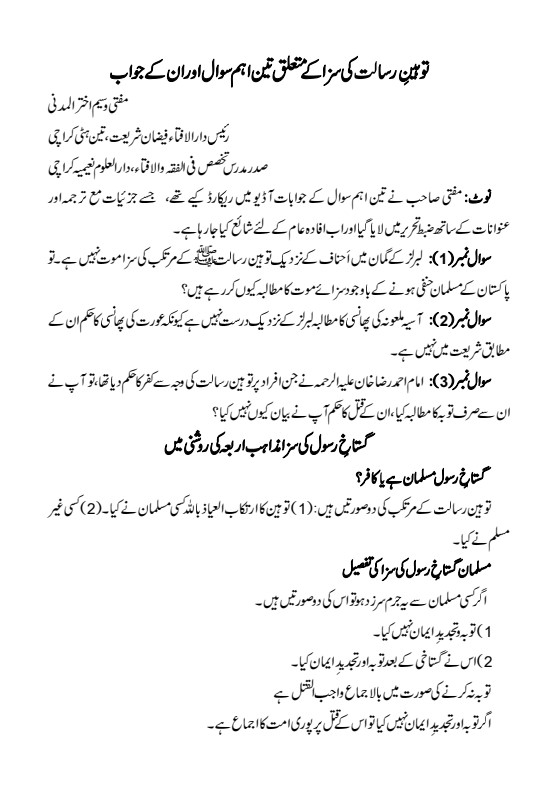 توہینِ رسالت کی سزا کے متعلق تین اہم سوال اور ان کے جواب
مفتی وسیم اختر المدنی
رئیس دار الافتاء فیضان شریعت، تین ہٹی کراچی
صدر مدرس تخصص فی الفقہ والافتاء، دار العلوم نعیمیہ کراچی
نوٹ: مفتی صاحب نے تین اہم سوال کے جوابات آڈیو میں ریکارڈ کیے تھے، جسے جزئیات مع ترجمہ اور
عنوانات کے ساتھ ضبط تحریر میں لایا گیا اور اب افادہ عام کے لئے شائع کیا جا رہا ہے۔
سوال نمبر (1): لبرلز کے گمان میں اَحناف کے نزدیک توہین رسالت ﷺ کے مرتکب کی سزا موت نہیں ہے۔ تو
پاکستان کے مسلمان حنفی ہونے کے باوجود سزائے موت کا مطالبہ کیوں کر رہے ہیں؟
سوال نمبر (2): آسیہ ملعونہ کی پھانسی کا مطالبہ لبرلز کے نزدیک درست نہیں ہے کیونکہ عورت کی پھانسی کا حکم ان کے
مطابق شریعت میں نہیں ہے۔
سوال نمبر (3): امام احمد رضا خان علیہ الرحمہ نے جن افراد پر توہین رسالت کی وجہ سے کفر کا حکم دیا تھا، تو آپ نے
ان سے صرف توبہ کا مطالبہ کیا، ان کے قتل کا حکم آپ نے بیان کیوں نہیں کیا؟
گستاخِ رسول کی سزا مذاہب اربعہ کی روشنی میں
گستاخِ رسول مسلمان ہے یا کافر؟
توہین رسالت کے مرتکب کی دو صورتیں ہیں: (1) توہین کا ارتکاب العیاذ باللہ کسی مسلمان نے کیا۔ (2) کسی غیر
مسلم نے کیا۔
مسلمان گستاخِ رسول کی سزا کی تفصیل
اگر کسی مسلمان سے یہ جرم سرزد ہو تو اس کی دو صورتیں ہیں۔
1) توبہ و تجدیدِ ایمان نہیں کیا۔
2) اس نے گستاخی کے بعد توبہ اور تجدیدِ ایمان کیا۔
توبہ نہ کرنے کی صورت میں بالاجماع واجب القتل ہے
اگر توبہ اور تجدیدِ ایمان نہیں کیا تو اس کے قتل پر پوری امت کا اجماع ہے۔